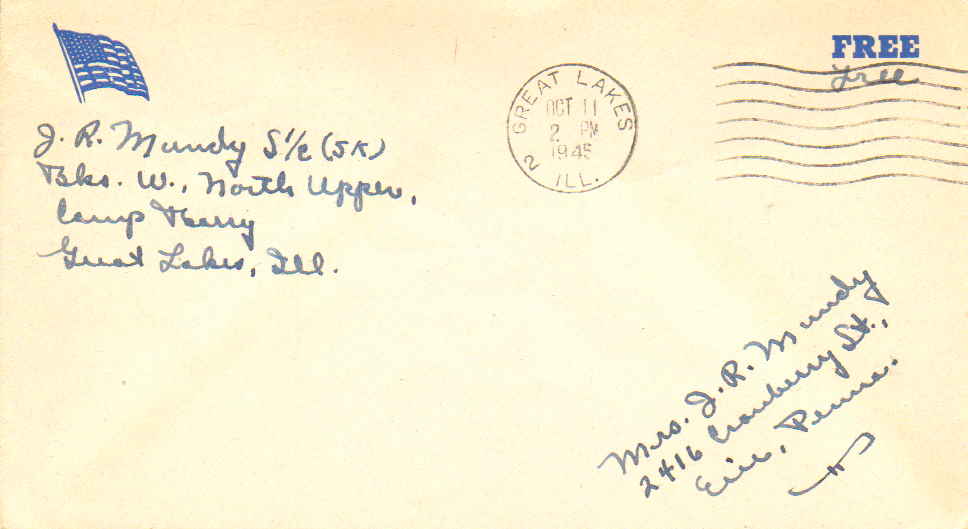 FREE
Free
GREAT LAKES
OCT 11
2 PM
1945
2 ILL.
J. R. Mundy S1/c (SK)
Bks. W., North Upper,
Camp Barry
Great Lakes, Ill.
Mrs. J. R. Mundy
2416 Cranberry St.,
Erie, Penna.